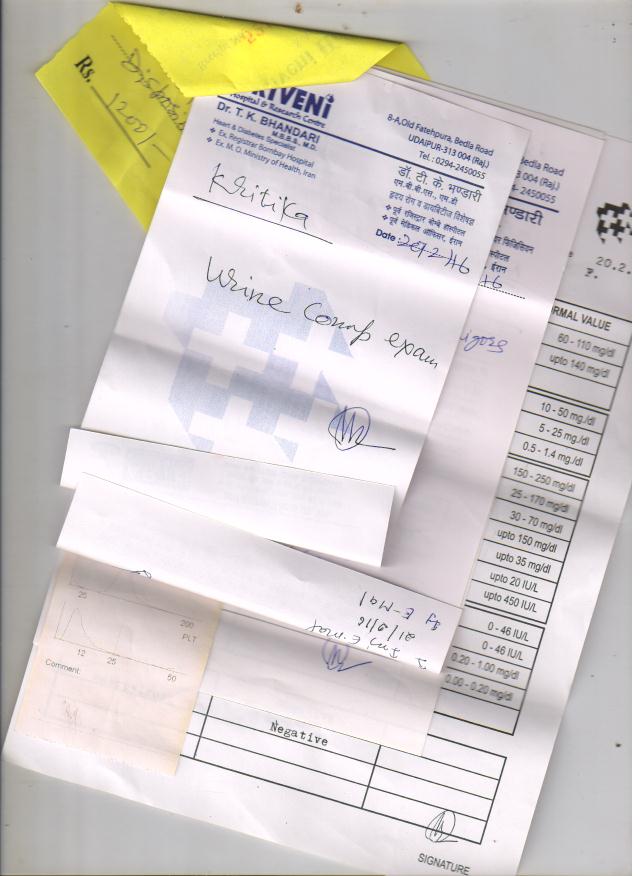 Rs. 1200/-
RIVENI
Hospital & Research Centre
Dr. T. K. BHANDARI
M.B.B.S., M.D.
Heart & Diabetes Specialist
❖ Ex. Registrar Bombay Hospital
❖ Ex. M. O. Ministry of Health, Iran
8-A,Old Fatehpura, Bedla Road
UDAIPUR-313 004 (Raj.)
Tel.: 0294-2450055
डॉ. टी. के. भण्डारी
एम.बी.बी.एस., एम.डी
हृदय रोग व डायबिटीज विशेषज्ञ
❖ पूर्व रजिस्ट्रार बोम्बे हॉस्पीटल
❖ पूर्व मेडिकल ऑफिसर, ईरान
Date :
Kritika
Urine Comp exam
Bedla Road
3 004 (Raj.)
- 2450055
ण्डारी
ईरान
20.2.
F.
RMAL VALUE
60 - 110 mg/dl
upto 140 mg/dl
10 - 50 mg./dl
5 - 25 mg/dl
0.5 - 1.4 mg./dl
150 - 250 mg/dl
25 - 170 mg/dl
30 - 70 mg/dl
upto 150 mg/dl
upto 35 mg/dl
upto 20 IU/L
upto 450 IU/L
0 - 46 IU/L
0 - 46 IU/L
0.20 - 1.00 mg/dl
0.00 - 0.20 mg/dl
Inj E-mal
21/2/16
Inj E-Mal
25
200
PLT
12 25 50
Comment:
Negative
SIGNATURE